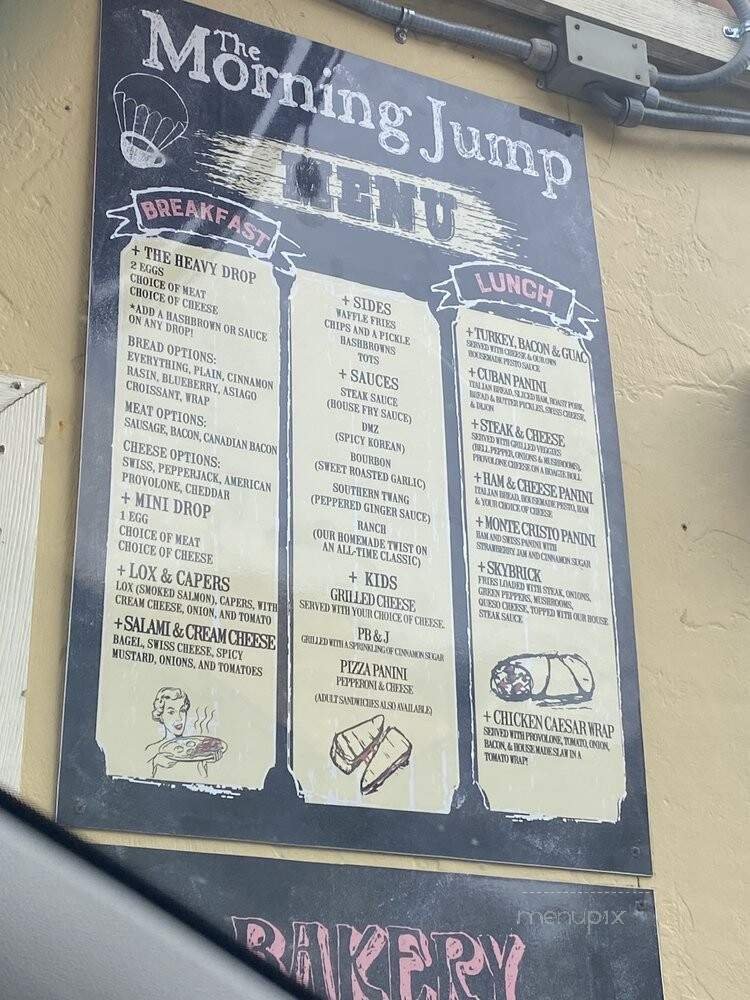 The
Morning Jump
MENU
BREAKFAST
+ THE HEAVY DROP
2 EGGS
CHOICE OF MEAT
CHOICE OF CHEESE
*ADD A HASHBROWN OR SAUCE
ON ANY DROP!
BREAD OPTIONS:
EVERYTHING, PLAIN, CINNAMON
RASIN, BLUEBERRY, ASIAGO
CROISSANT, WRAP
MEAT OPTIONS:
SAUSAGE, BACON, CANADIAN BACON
CHEESE OPTIONS:
SWISS, PEPPERJACK, AMERICAN
PROVOLONE, CHEDDAR
+ MINI DROP
1 EGG
CHOICE OF MEAT
CHOICE OF CHEESE
+ LOX & CAPERS
LOX (SMOKED SALMON), CAPERS, WITH
CREAM CHEESE, ONION, AND TOMATO
+ SALAMI & CREAM CHEESE
BAGEL, SWISS CHEESE, SPICY
MUSTARD, ONIONS, AND TOMATOES
+ SIDES
WAFFLE FRIES
CHIPS AND A PICKLE
HASHBROWNS
TOTS
+ SAUCES
STEAK SAUCE
(HOUSE FRY SAUCE)
DMZ
(SPICY KOREAN)
BOURBON
(SWEET ROASTED GARLIC)
SOUTHERN TWANG
(PEPPERED GINGER SAUCE)
RANCH
(OUR HOMEMADE TWIST ON
AN ALL-TIME CLASSIC)
+ KIDS
GRILLED CHEESE
SERVED WITH YOUR CHOICE OF CHEESE.
PB & J
GRILLED WITH A SPRINKLING OF CINNAMON SUGAR
PIZZA PANINI
PEPPERONI & CHEESE
(ADULT SANDWICHES ALSO AVAILABLE)
LUNCH
+ TURKEY, BACON & GUAC
SERVED WITH CHEESE & OUR OWN
HOUSEMADE PESTO SAUCE
+ CUBAN PANINI
ITALIAN BREAD, SLICED HAM, ROAST PORK,
BREAD & BUTTER PICKLES, SWISS CHEESE,
& DIJON
+ STEAK & CHEESE
SERVED WITH GRILLED VEGGIES
(BELL PEPPER, ONIONS & MUSHROOMS),
PROVOLONE CHEESE ON A HOAGIE ROLL
+ HAM & CHEESE PANINI
ITALIAN BREAD, HOUSEMADE PESTO, HAM
& YOUR CHOICE OF CHEESE
+ MONTE CRISTO PANINI
HAM AND SWISS PANINI WITH
STRAWBERRY JAM AND CINNAMON SUGAR
+ SKYBRICK
FRIES LOADED WITH STEAK, ONIONS,
GREEN PEPPERS, MUSHROOMS,
QUESO CHEESE, TOPPED WITH OUR HOUSE
STEAK SAUCE
+ CHICKEN CAESAR WRAP
SERVED WITH PROVOLONE, TOMATO, ONION,
BACON, & HOUSE MADE SLAW IN A
TOMATO WRAP!
BAKERY
menupix